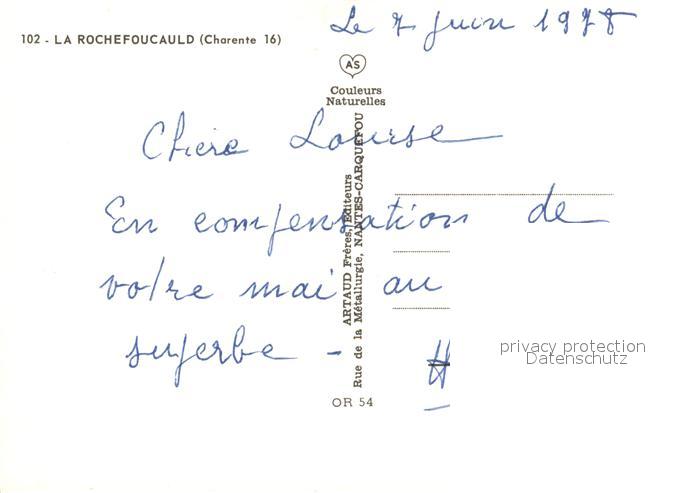 Le 7 juin 1978
102 - LA ROCHEFOUCAULD (Charente 16)
AS
Couleurs
Naturelles
Chère Louise
En compensation de
votre mai au
superbe -
ARTAUD Frères, Editeurs
Rue de la Métallurgie, NANTES-CARQUEFOU
OR 54
privacy protection
Datenschutz